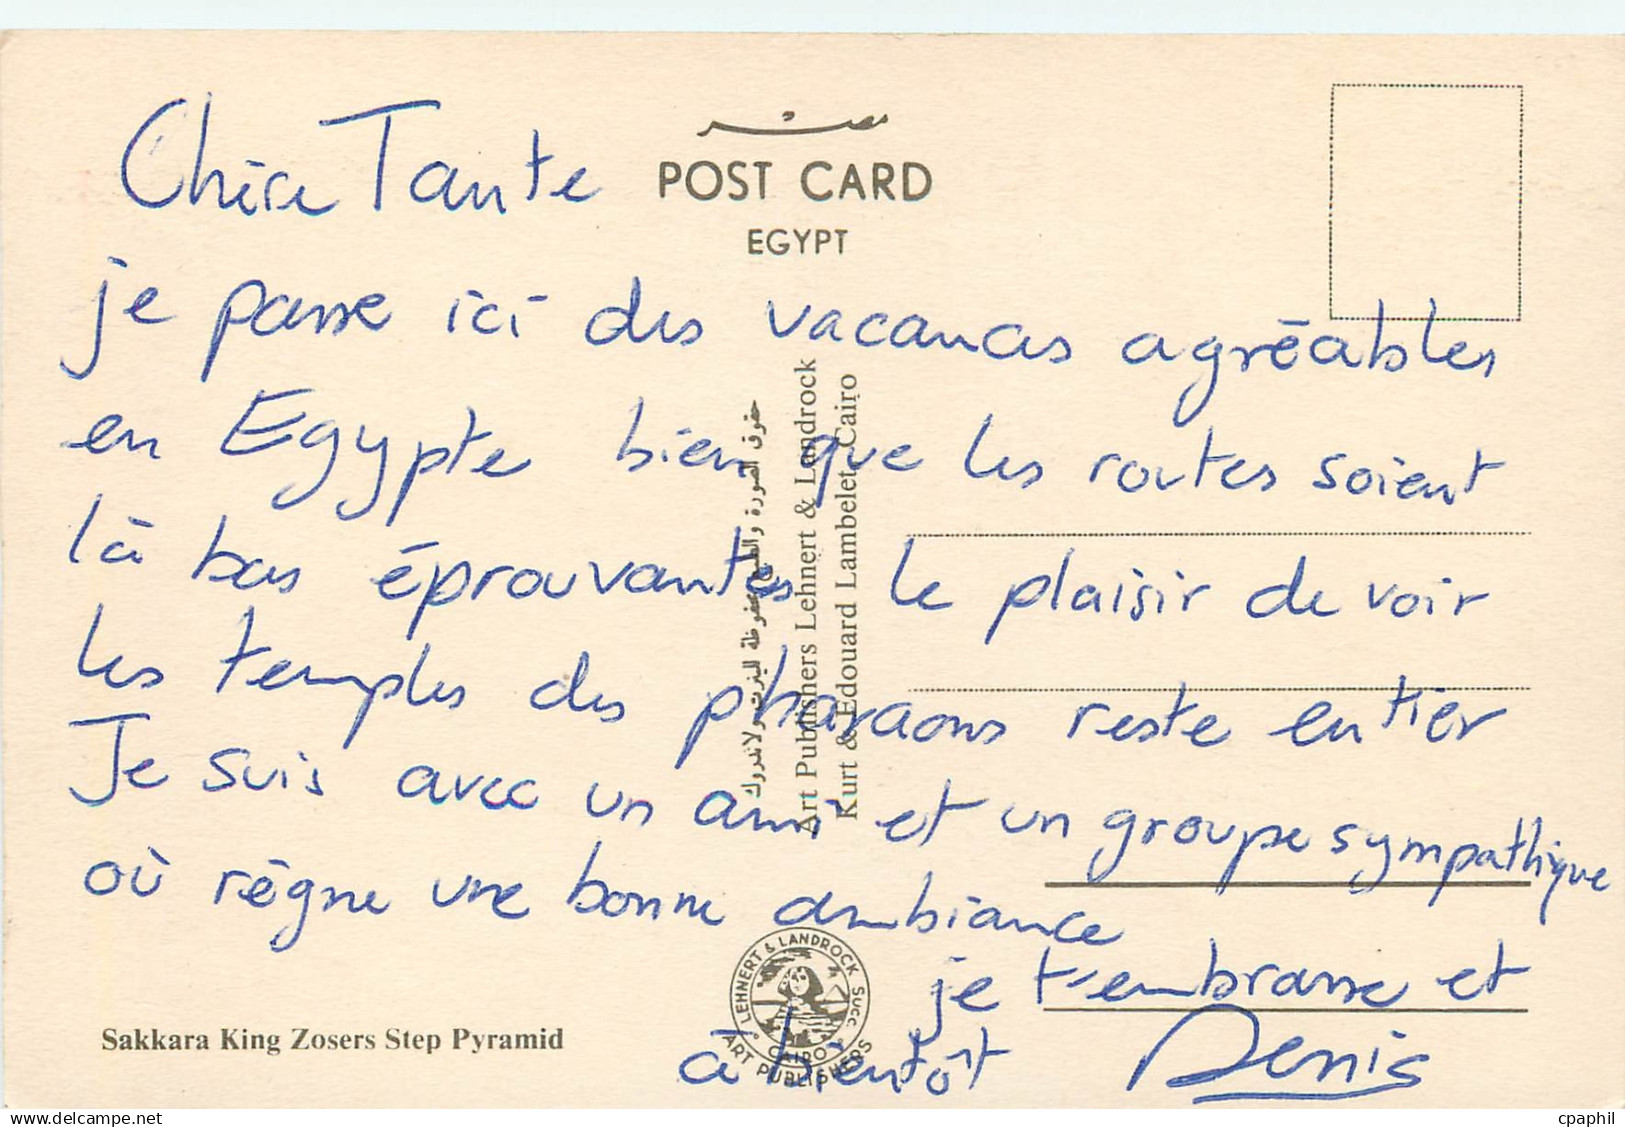 مصر
POST CARD
EGYPT
Chère Tante
je passe ici des vacances agréables
en Egypte bien que les routes soient
là bas éprouvantes le plaisir de voir
les temples des pharaons reste entier
Je suis avec un ami et un groupe sympathique
où règne une bonne ambiance
je t'embrasse et
à bientôt Denis
حقوق الصورة والطبع محفوظة للينرت ولاندروك
Art Publishers Lehnert & Landrock
Kurt & Edouard Lambelet, Cairo
LEHNERT & LANDROCK SUCC.
CAIRO
ART PUBLISHERS
Sakkara King Zosers Step Pyramid
cpaphil